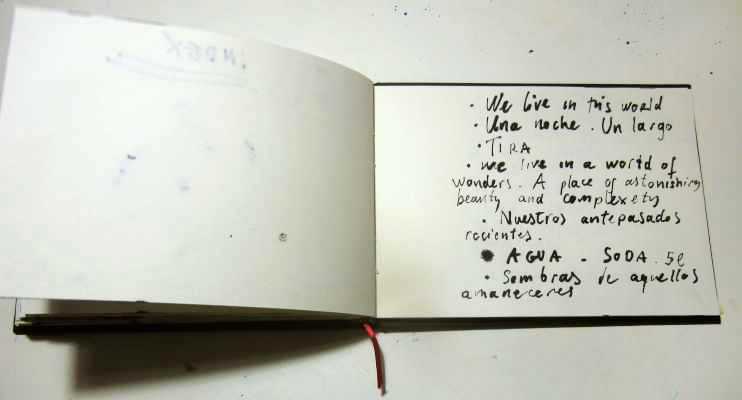 INDEX
• We live in this world
• Una noche. Un largo
• TIRA
• we live in a world of
wonders. A place of astonishing
beauty and complexety
• Nuestros antepasados
recientes.
• AGUA - SODA.
• Sombras de aquellos
amaneceres